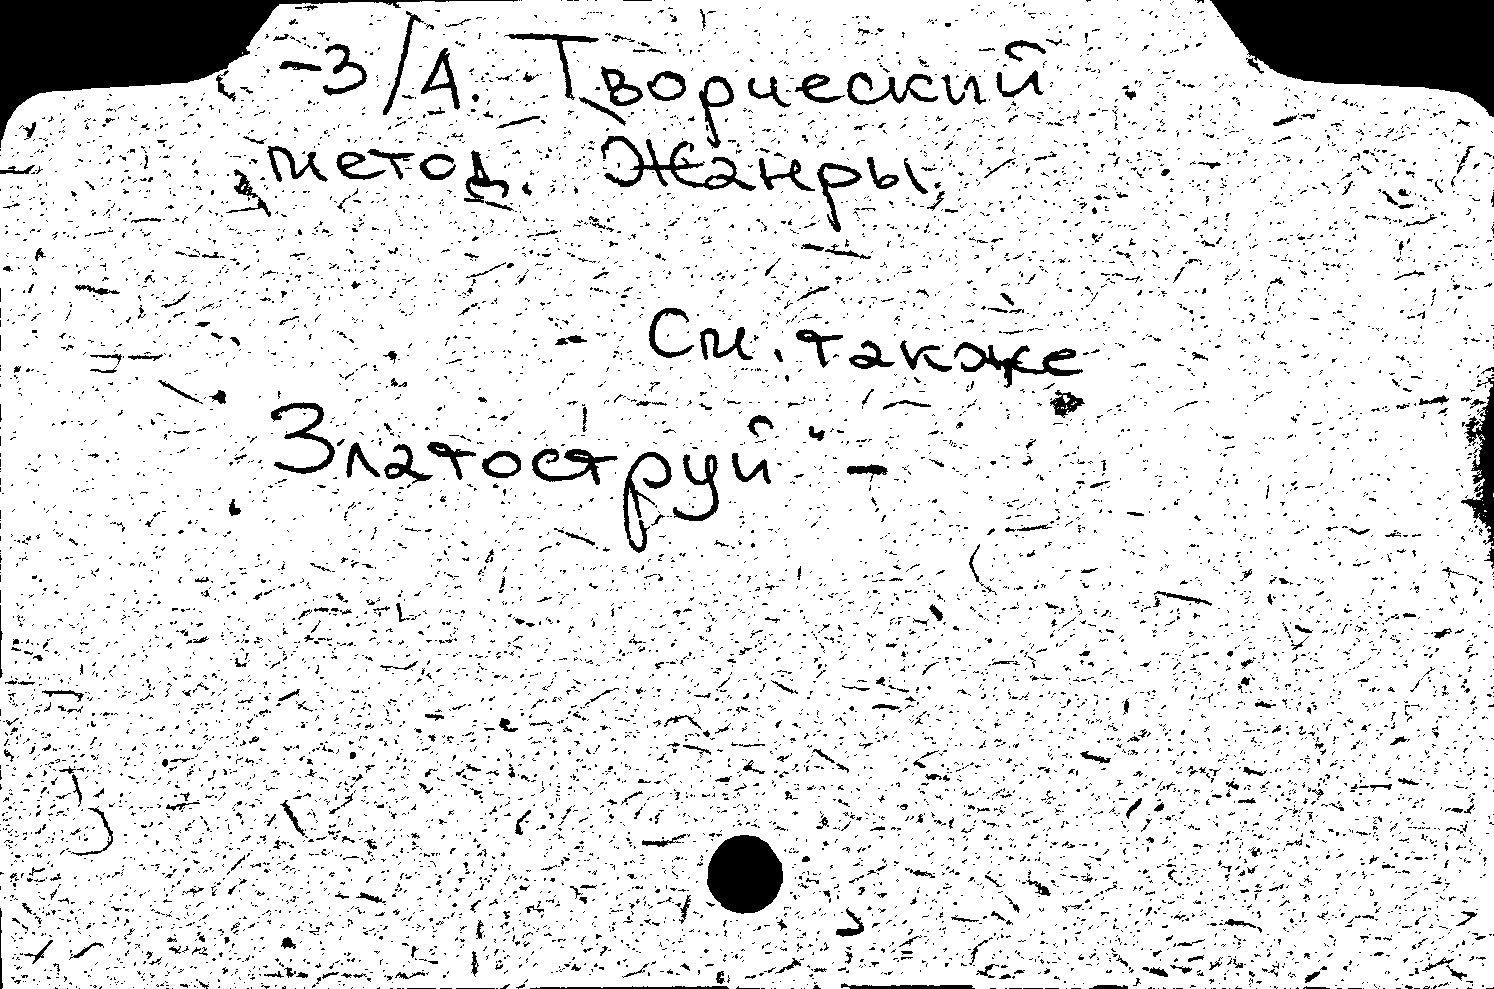 -3/4. Творческий
метод. Жанры.
См. также
Златоструй" -